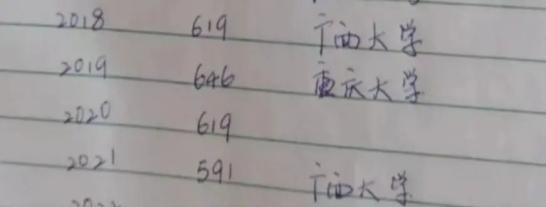 2018 619 广西大学
2019 646 重庆大学
2020 619
2021 591 广西大学